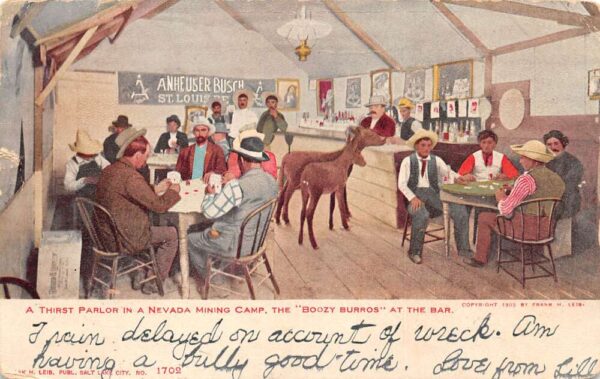 ANHEUSER BUSCH
ST. LOUIS
A THIRST PARLOR IN A NEVADA MINING CAMP, THE "BOOZY BURROS" AT THE BAR.
COPYRIGHT 1905 BY FRANK H. LEIB.
Train delayed on account of wreck. Am
having a bully good time. Love from Lill
H. LEIB, PUBL. SALT LAKE CITY, NO. 1702